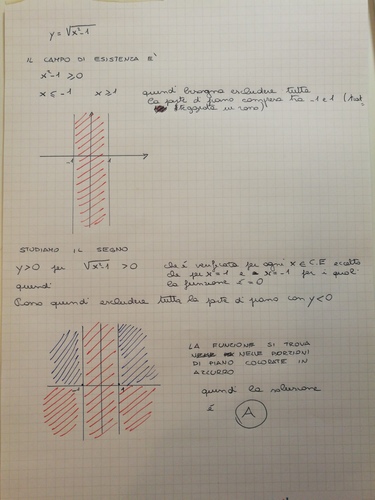 y = √x²-1
IL CAMPO DI ESISTENZA E'
x²-1 ≥0
x ≤ -1 x ≥ 1 quindi bisogna escludere tutta
la parte di piano compresa tra -1 e 1 (trat
teggiata in rosso)
-1 1
STUDIAMO IL SEGNO
y>0 per √x²-1 > 0 che è verificata per ogni x ∈ C.E eccetto
che per x=1 e x=-1 per i quali
quindi la funzione è = 0
Posso quindi escludere tutta la parte di piano con y<0
LA FUNZIONE SI TROVA
NELLE PORZIONI
DI PIANO COLORATE IN
AZZURRO
-1 1
quindi la soluzione
è A